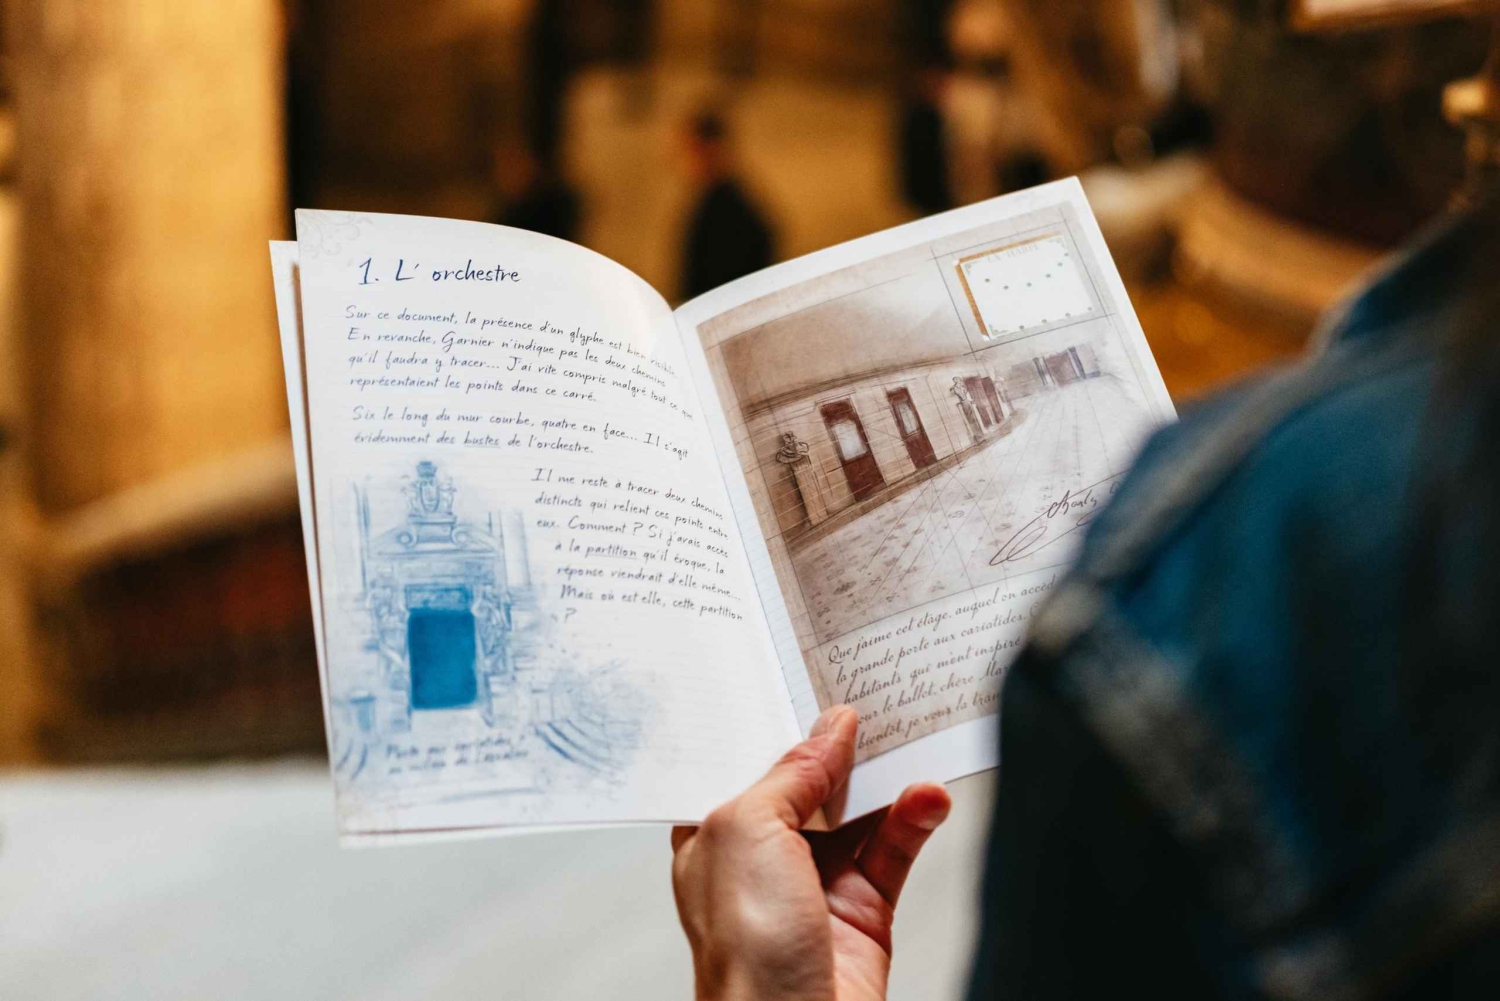 1. L'orchestre
Sur ce document, la présence d'un glyphe est bien visible.
En revanche, Garnier n'indique pas les deux chemins
qu'il faudra y tracer... J'ai vite compris malgré tout ce que
représentaient les points dans ce carré.
Six le long du mur courbe, quatre en face... Il s'agit
évidemment des bustes de l'orchestre.
Il me reste à tracer deux chemins
distincts qui relient ces points entre
eux. Comment ? Si j'avais accès
à la partition qu'il évoque, la
réponse viendrait d'elle même...
Mais où est elle, cette partition
?
Porte aux cariatides
Que j'aime cet étage, auquel on accède
la grande porte aux cariatides.
habitants qui m'ont inspiré
pour le ballet, chère
bientôt, je vous la